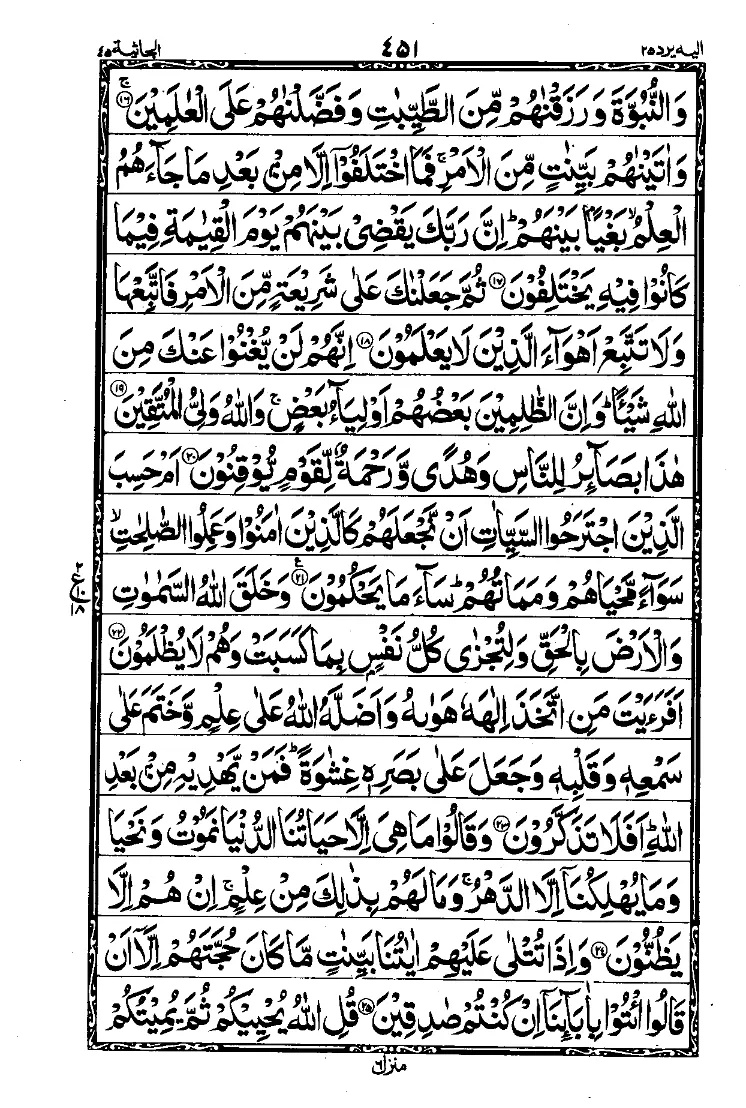 اليه يرد ٢٥ ٤٥١ الجاثية ٤٥
وَالنُّبُوَّةَ وَرَزَقْنٰهُمْ مِّنَ الطَّيِّبٰتِ وَفَضَّلْنٰهُمْ عَلَى الْعٰلَمِيْنَ ۚ‏﴿۱۶﴾
وَاٰتَيْنٰهُمْ بَيِّنٰتٍ مِّنَ الْاَمْرِ ۚ فَمَا اخْتَلَفُوْۤا اِلَّا مِنْۢ بَعْدِ مَا جَآءَهُمُ
الْعِلْمُ ۙ بَغْيًاۢ بَيْنَهُمْ ؕ اِنَّ رَبَّكَ يَقْضِىْ بَيْنَهُمْ يَوْمَ الْقِيٰمَةِ فِيْمَا
كَانُوْا فِيْهِ يَخْتَلِفُوْنَ ﴿۱۷﴾ ثُمَّ جَعَلْنٰكَ عَلٰى شَرِيْعَةٍ مِّنَ الْاَمْرِ فَاتَّبِعْهَا
وَلَا تَتَّبِعْ اَهْوَآءَ الَّذِيْنَ لَا يَعْلَمُوْنَ ﴿۱۸﴾ اِنَّهُمْ لَنْ يُّغْنُوْا عَنْكَ مِنَ
اللّٰهِ شَيْـًٔا ؕ وَاِنَّ الظّٰلِمِيْنَ بَعْضُهُمْ اَوْلِيَآءُ بَعْضٍ ۚ وَاللّٰهُ وَلِىُّ الْمُتَّقِيْنَ ﴿۱۹﴾
هٰذَا بَصَآئِرُ لِلنَّاسِ وَهُدًى وَّرَحْمَةٌ لِّقَوْمٍ يُّوْقِنُوْنَ ﴿۲۰﴾ اَمْ حَسِبَ
الَّذِيْنَ اجْتَرَحُوا السَّيِّاٰتِ اَنْ نَّجْعَلَهُمْ كَالَّذِيْنَ اٰمَنُوْا وَعَمِلُوا الصّٰلِحٰتِ ۙ
سَوَآءً مَّحْيَاهُمْ وَمَمَاتُهُمْ ؕ سَآءَ مَا يَحْكُمُوْنَ ﴿۲۱﴾ وَخَلَقَ اللّٰهُ السَّمٰوٰتِ
وَالْاَرْضَ بِالْحَقِّ وَلِتُجْزٰى كُلُّ نَفْسٍۭ بِمَا كَسَبَتْ وَهُمْ لَا يُظْلَمُوْنَ ﴿۲۲﴾
اَفَرَءَيْتَ مَنِ اتَّخَذَ اِلٰهَهٗ هَوٰىهُ وَاَضَلَّهُ اللّٰهُ عَلٰى عِلْمٍ وَّخَتَمَ عَلٰى
سَمْعِهٖ وَقَلْبِهٖ وَجَعَلَ عَلٰى بَصَرِهٖ غِشٰوَةً ؕ فَمَنْ يَّهْدِيْهِ مِنْۢ بَعْدِ
اللّٰهِ ؕ اَفَلَا تَذَكَّرُوْنَ ﴿۲۳﴾ وَقَالُوْا مَا هِىَ اِلَّا حَيَاتُنَا الدُّنْيَا نَمُوْتُ وَنَحْيَا
وَمَا يُهْلِكُنَاۤ اِلَّا الدَّهْرُ ۚ وَمَا لَهُمْ بِذٰلِكَ مِنْ عِلْمٍ ۚ اِنْ هُمْ اِلَّا
يَظُنُّوْنَ ﴿۲۴﴾ وَاِذَا تُتْلٰى عَلَيْهِمْ اٰيٰتُنَا بَيِّنٰتٍ مَّا كَانَ حُجَّتَهُمْ اِلَّاۤ اَنْ
قَالُوا ائْتُوْا بِاٰبَآئِنَاۤ اِنْ كُنْتُمْ صٰدِقِيْنَ ﴿۲۵﴾ قُلِ اللّٰهُ يُحْيِيْكُمْ ثُمَّ يُمِيْتُكُمْ
٢
ع
١٨
منزل ٦